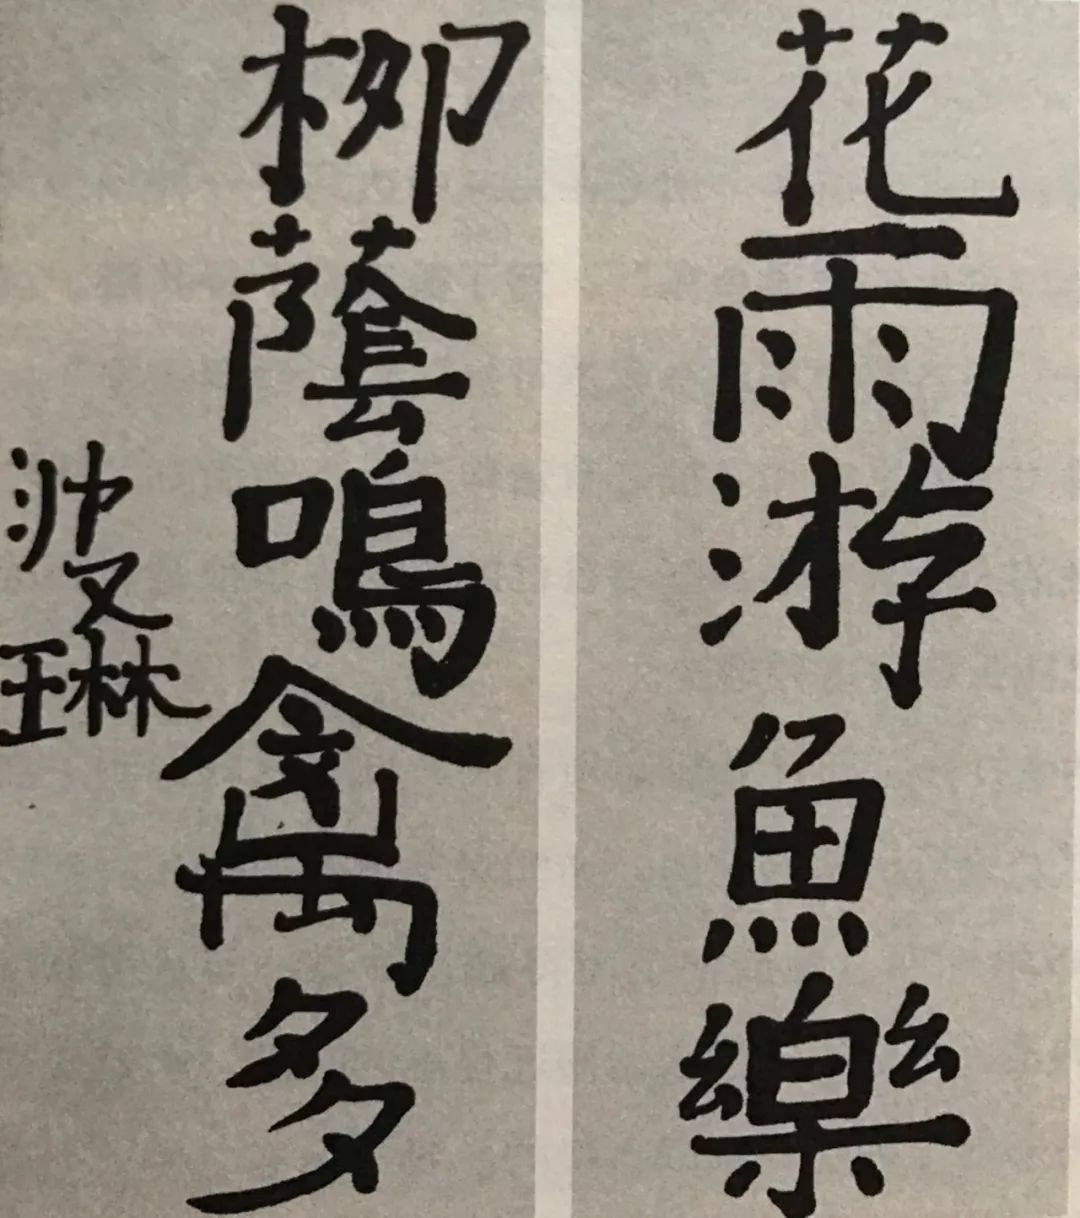 花雨游魚樂
柳蔭鳴禽多
沙曼琳